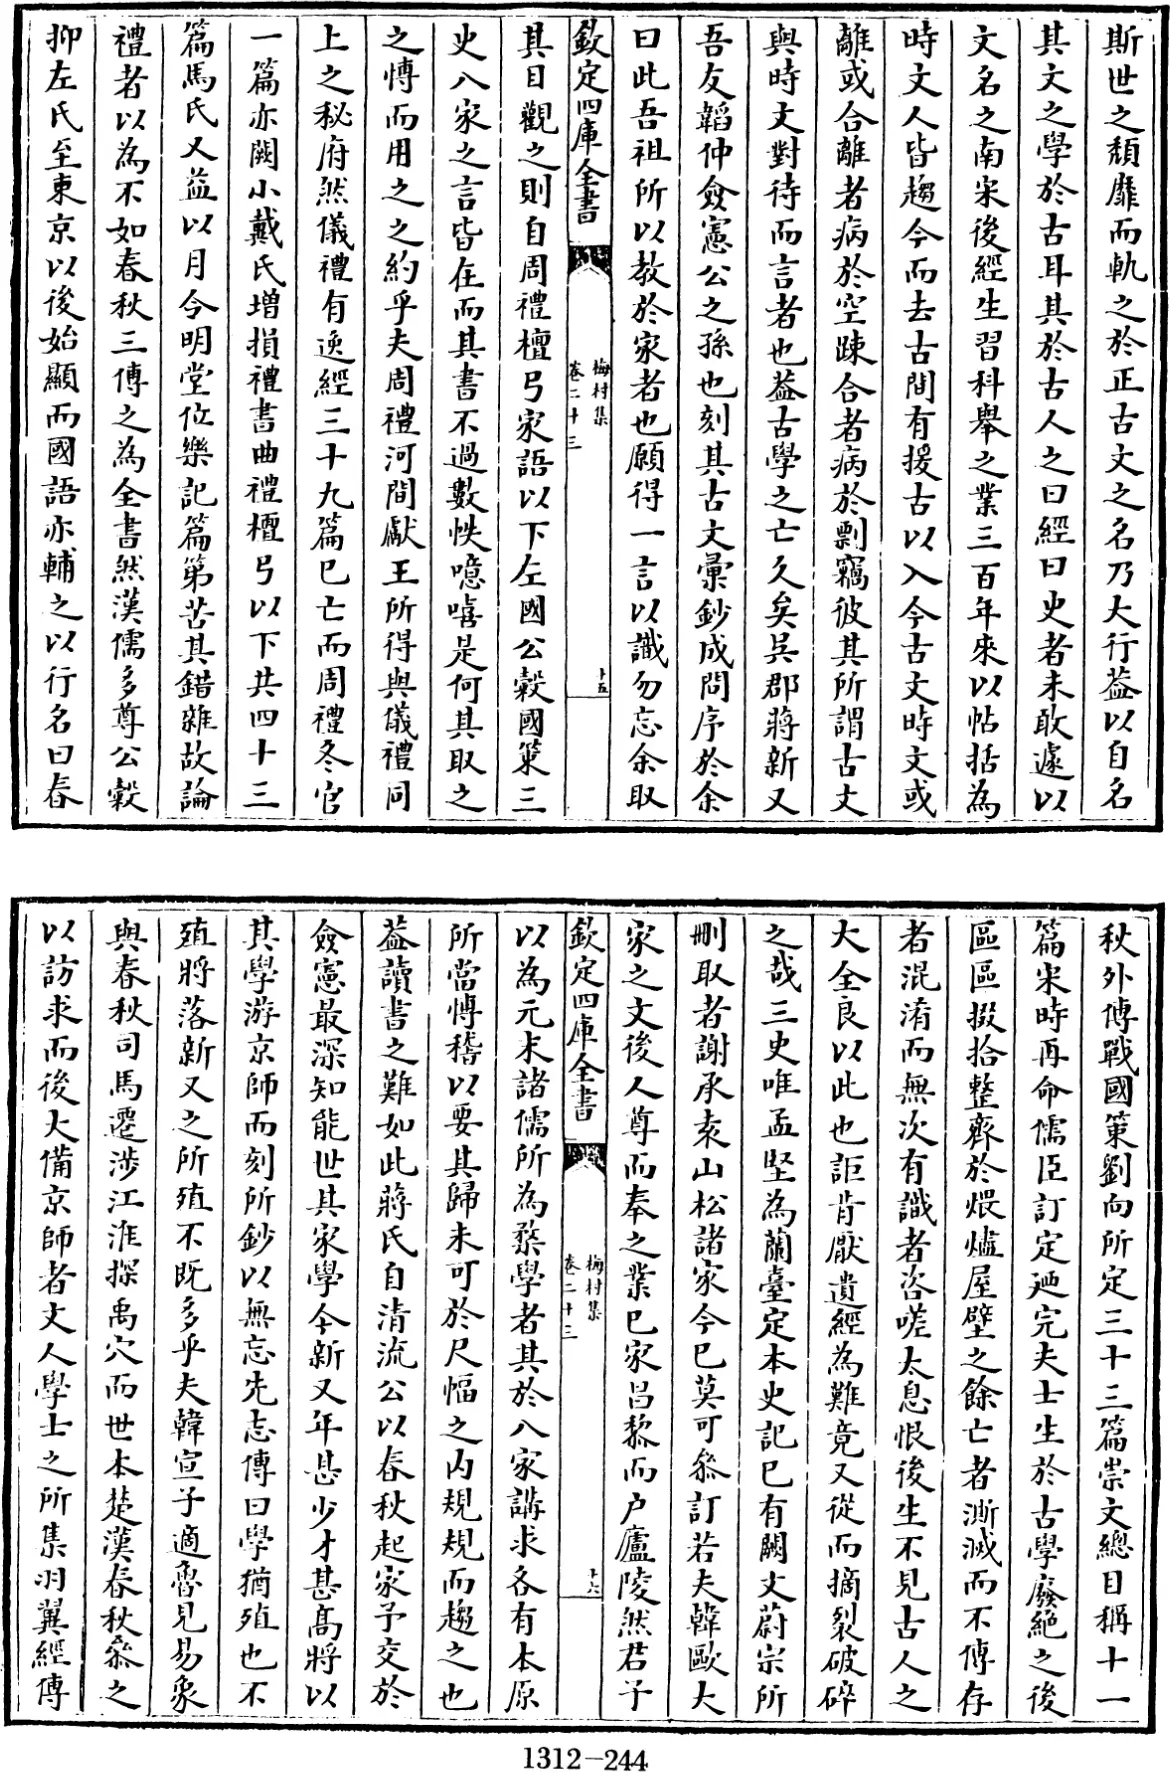 斯世之頽靡而軌之於正古文之名乃大行蓋以自名
其文之學於古耳其於古人之曰經曰史者未敢遽以
文名之南宋後經生習科舉之業三百年來以帖括為
時文人皆趨今而去古間有援古以入今古文時文或
離或合離者病於空踈合者病於剽竊彼其所謂古文
與時文對待而言者也蓋古學之亡久矣吳郡蔣新又
吾友韜仲僉憲公之孫也刻其古文彚鈔成問序於余
曰此吾祖所以教於家者也願得一言以識勿忘余取
欽定四庫全書
梅村集
卷二十三
十五
其目觀之則自周禮檀弓家語以下左國公穀國策三
史八家之言皆在而其書不過數帙噫嘻是何其取之
之慱而用之之約乎夫周禮河間獻王所得與儀禮同
上之秘府然儀禮有逸經三十九篇已亡而周禮冬官
一篇亦闕小戴氏增損禮書曲禮檀弓以下共四十三
篇馬氏又益以月令明堂位樂記篇第苦其錯雜故論
禮者以為不如春秋三傳之為全書然漢儒多尊公穀
抑左氏至東京以後始顯而國語亦輔之以行名曰春
秋外傳戰國策劉向所定三十三篇崇文總目稱十一
篇宋時再命儒臣訂定廼完夫士生於古學廢絕之後
區區掇拾整齊於煨燼屋壁之餘亡者澌滅而不傳存
者混淆而無次有識者咨嗟太息恨後生不見古人之
大全良以此也詎肯厭遺經為難竟又從而摘裂破碎
之哉三史唯孟堅為蘭臺定本史記已有闕文蔚宗所
刪取者謝承袁山松諸家今已莫可叅訂若夫韓歐大
家之文後人尊而奉之業已家昌黎而户廬陵然君子
欽定四庫全書
梅村集
卷二十三
十六
以為元末諸儒所為棼學者其於八家講求各有本原
所當慱稽以要其歸未可於尺幅之内規規而趨之也
蓋讀書之難如此蔣氏自清流公以春秋起家予交於
僉憲最深知能世其家學今新又年甚少才甚髙將以
其學游京師而刻所鈔以無忘先志傳曰學猶殖也不
殖將落新又之所殖不既多乎夫韓宣子適魯見易象
與春秋司馬遷涉江淮探禹穴而世本楚漢春秋叅之
以訪求而後大備京師者文人學士之所集羽翼經傳
1312-244